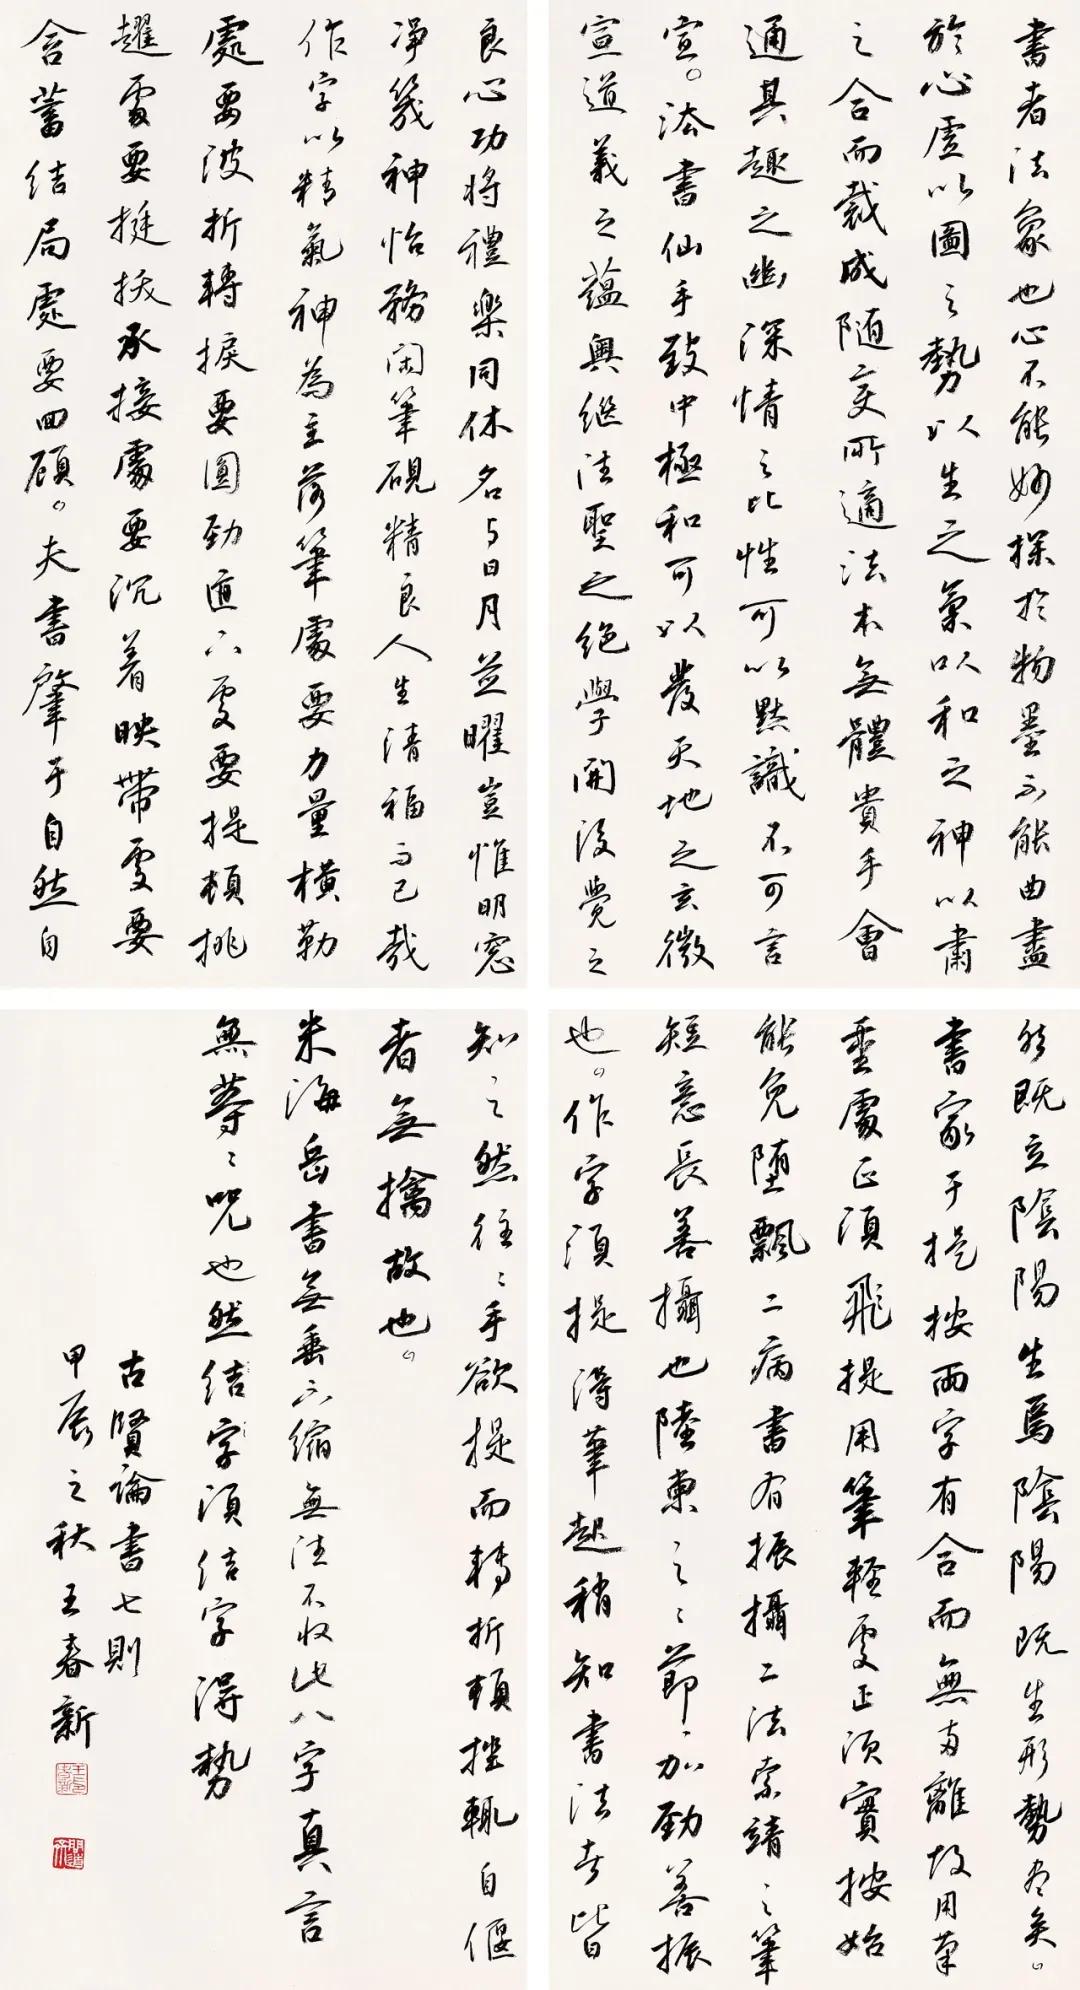 書者法象也心不能妙探於物墨不能曲盡
於心虛以圖之勢以生之氣以和之神以肅
之合而裁成隨變所適法本無體貴乎會
通其趣之幽深情之比性可以默識不可言
宣。法書仙手致中極和可以發天地之玄微
宣道義之蘊奧繼往聖之絕學開後覺之
良心功將禮樂同休名与日月並曜豈惟明窓
淨幾神怡務閑筆硯精良人生清福而已哉
作字以精氣神為主落筆處要力量橫勒
處要波折轉捩要圓勁直下處要提頓挑
趯處要挺拔承接處要沉着映帶處要
含蓄結局處要回顧。夫書肇于自然自
然既立陰陽生焉陰陽既生形勢出矣。
書家于提按兩字有合而無離故用筆
重處正須飛提用筆輕處正須實按始
能免墮飄二病書有振攝二法索靖之筆
短意長善攝也陸柬之之節々加勁善振
也。作字須提得筆起稍知書法者皆
知之然往々手欲提而轉折頓挫輒自偃
者無擒故也。
米海岳書無垂不縮無往不收此八字真言
無等々咒也然結字須結字得勢
古賢論書七則
甲辰之秋王春新